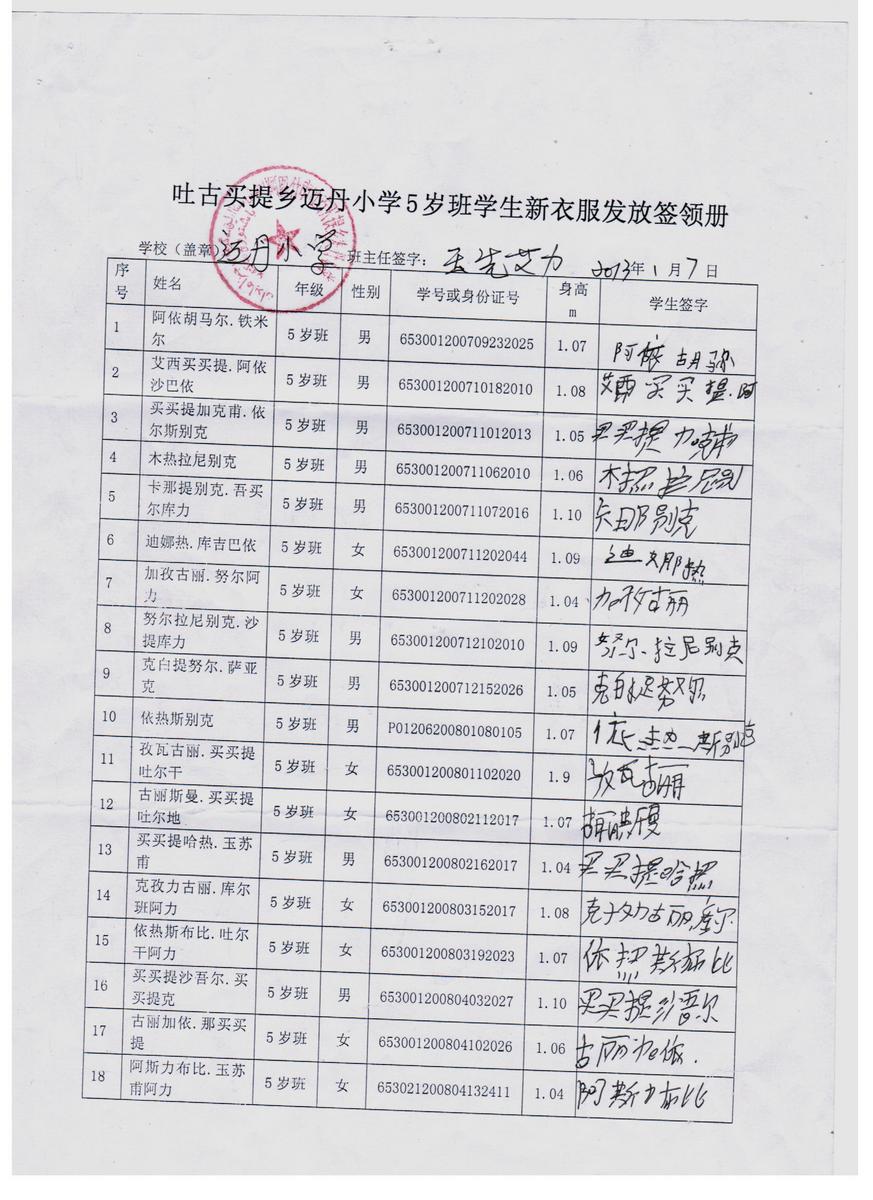 吐古买提乡迈丹小学5岁班学生新衣服发放签领册
学校（盖章） 迈丹小学 班主任签字： 2013年1月7日
序号 姓名 年级 性别 学号或身份证号 身高m 学生签字
1 阿依胡马尔.铁米尔 5岁班 男 653001200709232025 1.07 阿依胡马尔
2 艾西买买提.阿依沙巴依 5岁班 男 653001200710182010 1.08 艾西买买提.阿
3 买买提加克甫.依尔斯别克 5岁班 男 653001200711012013 1.05 买买提加克甫
4 木热拉尼别克 5岁班 男 653001200711062010 1.06 木热拉尼别
5 卡那提别克.吾买尔库力 5岁班 男 653001200711072016 1.10 卡那别克
6 迪娜热.库吉巴依 5岁班 女 653001200711202044 1.09 迪娜热
7 加孜古丽.努尔阿力 5岁班 女 653001200711202028 1.04 加孜古丽
8 努尔拉尼别克.沙提库力 5岁班 男 653001200712102010 1.09 努尔.拉尼别克
9 克白提努尔.萨亚克 5岁班 男 653001200712152026 1.05 克白提努尔
10 依热斯别克 5岁班 男 P01206200801080105 1.07 依热斯别克
11 孜瓦古丽.买买提吐尔干 5岁班 女 653001200801102020 1.9 孜瓦古丽
12 古丽斯曼.买买提吐尔地 5岁班 女 653001200802112017 1.07
13 买买提哈热.玉苏甫 5岁班 男 653001200802162017 1.04 买买提哈热
14 克孜力古丽.库尔班阿力 5岁班 女 653001200803152017 1.08 克孜力古丽.库尔
15 依热斯布比.吐尔干阿力 5岁班 女 653001200803192023 1.07 依热斯布比
16 买买提沙吾尔.买买提克 5岁班 男 653001200804032027 1.10 买买提沙吾尔
17 古丽加依.那买买提 5岁班 女 653001200804102026 1.06 古丽加依.
18 阿斯力布比.玉苏甫阿力 5岁班 女 653021200804132411 1.04 阿斯力布比